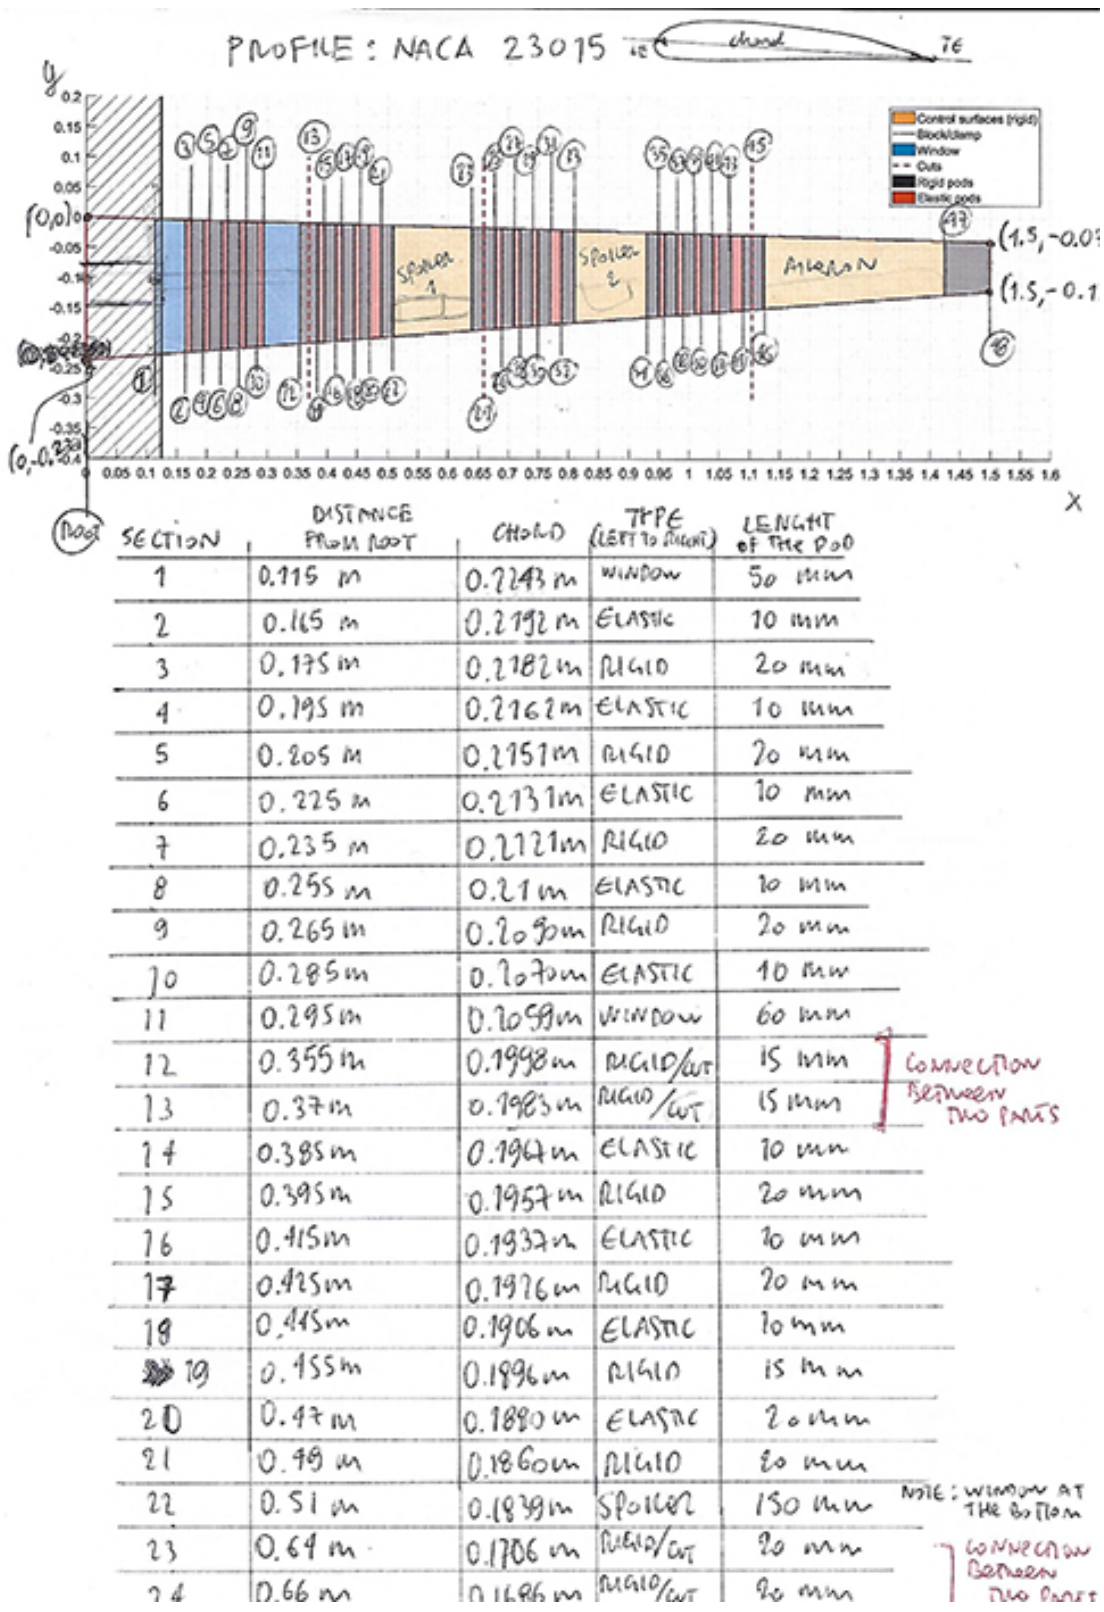 PROFILE: NACA 23015
LE chord TE
y
0.2
0.15
0.1
0.05
0
-0.05
-0.1
-0.15
-0.2
-0.25
-0.3
-0.35
-0.4
(0,0)
Control surfaces (rigid)
Block/clamp
Window
Cuts
Rigid pods
Elastic pods
3 5 7 9 11 13 15 17 19 21 23 25 27 29 31 33 35 37 39 41 43 45 47
SPOILER 1
SPOILER 2
AILERON
(1.5, -0.03
(1.5, -0.1
1 2 4 6 8 10 12 14 16 18 20 22 24 26 28 30 32 34 36 38 40 42 44 46 48
0 0.05 0.1 0.15 0.2 0.25 0.3 0.35 0.4 0.45 0.5 0.55 0.6 0.65 0.7 0.75 0.8 0.85 0.9 0.95 1 1.05 1.1 1.15 1.2 1.25 1.3 1.35 1.4 1.45 1.5 1.55 1.6
X
ROOT
SECTION DISTANCE FROM ROOT CHORD TYPE (LEFT TO RIGHT) LENGHT OF THE POD
1 0.115 m 0.2243 m WINDOW 50 mm
2 0.165 m 0.2192 m ELASTIC 10 mm
3 0.175 m 0.2182 m RIGID 20 mm
4 0.195 m 0.2162 m ELASTIC 10 mm
5 0.205 m 0.2151 m RIGID 20 mm
6 0.225 m 0.2131 m ELASTIC 10 mm
7 0.235 m 0.2121 m RIGID 20 mm
8 0.255 m 0.21 m ELASTIC 10 mm
9 0.265 m 0.2090 m RIGID 20 mm
10 0.285 m 0.2070 m ELASTIC 10 mm
11 0.295 m 0.2059 m WINDOW 60 mm
12 0.355 m 0.1998 m RIGID/CUT 15 mm
13 0.37 m 0.1983 m RIGID/CUT 15 mm
CONNECTION
BETWEEN
TWO PARTS
14 0.385 m 0.1967 m ELASTIC 10 mm
15 0.395 m 0.1957 m RIGID 20 mm
16 0.415 m 0.1937 m ELASTIC 10 mm
17 0.425 m 0.1926 m RIGID 20 mm
18 0.445 m 0.1906 m ELASTIC 10 mm
19 0.455 m 0.1896 m RIGID 15 mm
20 0.47 m 0.1880 m ELASTIC 20 mm
21 0.49 m 0.1860 m RIGID 20 mm
22 0.51 m 0.1839 m SPOILER 130 mm
NOTE: WINDOW AT
THE BOTTOM
23 0.64 m 0.1706 m RIGID/CUT 20 mm
24 0.66 m 0.1686 m RIGID/CUT 20 mm
CONNECTION
BETWEEN
TWO PARTS